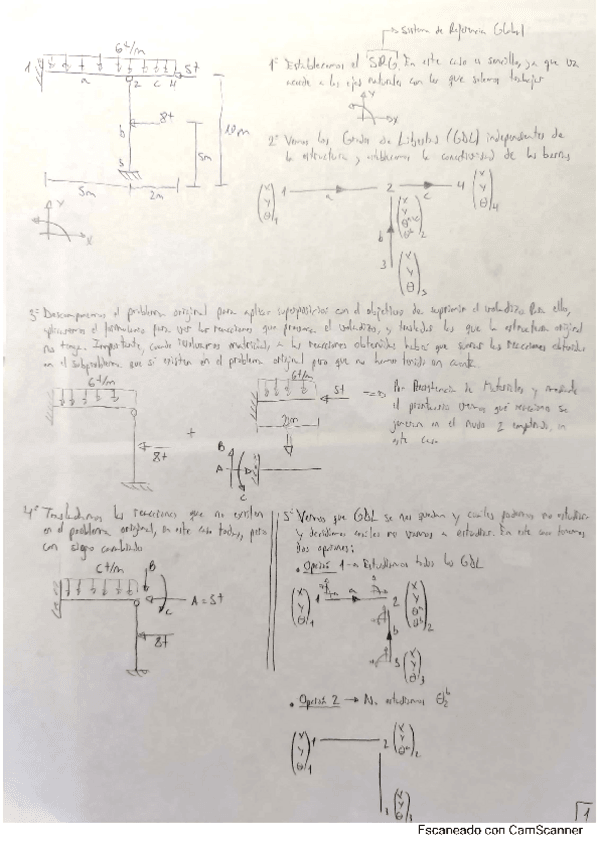 Sistema de Referencia Global
6t/m
1 a 2 c 4 5t
b 8t
3
10m
5m
5m 2m
Y
X
1º Establecemos el SRG. En este caso es sencillo, ya que va
acorde a los ejes naturales con los que solemos trabajar
Y
X
2º Vemos los Grados de Libertad (GDL) independientes de
la estructura y establecemos la conectividad de las barras
(X Y θ)1 1 a 2 c 4 (X Y θ)4
b
3 (X Y θ)3
3º Descomponemos el problema original para aplicar superposición con el objetivo de suprimir el voladizo. Para ello,
aplicaremos el formulario para ver las reacciones que presenta el voladizo, y trasladar las que la estructura original
no tenga. Importante, cuando resolvamos matricial, a las reacciones obtenidas habrá que sumar las reacciones obtenidas
en el subproblema que sí existen en el problema original pero que no hemos tenido en cuenta.
6t/m
8t
+
6t/m
5t
2m
B
A
C
Por Resistencia de Materiales y mediante
el prontuario vemos qué reacciones se
generan en el nudo 2 empotrado, en
este caso
4º Trasladamos las reacciones que no existen
en el problema original, en este caso todas, pero
con signo cambiado
6t/m
B
A = 5t
C
8t
5º Vemos que GDL se nos quedan y cuáles podemos no estudiar
y decidimos cuáles no vamos a estudiar. En este caso tenemos
dos opciones:
• Opción 1 → Estudiamos todos los GDL
(X Y θ)1 1 a 2 (X Y θa θb)2
b
3 (X Y θ)3
• Opción 2 → No estudiamos θ2b
(X Y θ)1 1 2 (X Y θa)2
3 (X Y θ)3
1
Escaneado con CamScanner